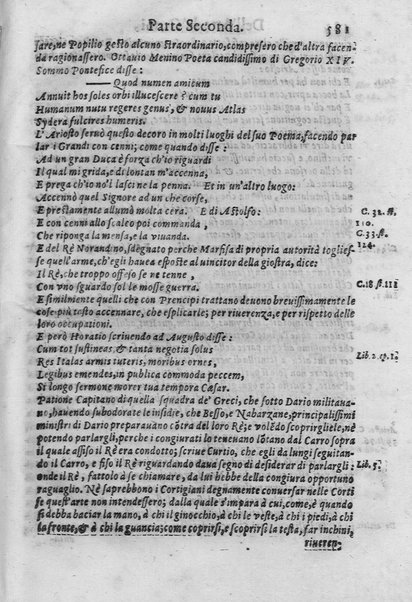 Parte Seconda. 581
sare, ne Popilio gesto alcuno straordinario, compresero che d'altra facen
da ragionassero. Ottauio Menino Poeta candidissimo di Gregorio XIV.
Sommo Pontefice disse:
Quod numen amicum
Annuit hos soles orbi illucescere? cum tu
Humanum nutu regeres genus, & nouus Atlas
Sydera fulcires humeris.
L'Ariosto seruò questo decoro in molti luoghi del suo Poema, facendo par
lar i Grandi con cenni; come quando disse:
Ad un gran Duca è forza ch'io riguardi
Il qual mi grida, e di lontan m'accenna,
E prega ch'io no'l lasci ne la penna. Et in un'altro luogo:
Accennò quel Signore ad un che corse,
E prestamente allumò molta cera. E di Astolfo: C. 32. st.
E con cenni allo scalco poi comanda, 110.
Che riponga la mensa, e la viuanda. C. 33. st.
E del Rè Norandino, sdegnato perche Marfisa di propria autorità toglies- 124.
se quell'arme, ch'egli hauea esposte al uincitor della giostra, dice:
Il Rè, che troppo offeso se ne tenne,
Con vno sguardo sol le mosse guerra. C. 18 st. 111
E similmente quelli che con Prencipi trattano deuono breuissimamente le
cose più tosto accennare, che esplicarle; per riuerenza, e per rispetto delle
loro occupationi.
E però Horatio scriuendo ad Augusto disse:
Cum tot sustineas, & tanta negotia solus Lib. 2. ep. 1.
Res Italas armis tuteris, moribus ornes,
Legibus emendes, in publica commoda peccem,
Si longo sermone morer tua tempora Cæsar.
Patione Capitano di quella squadra de' Greci, che sotto Dario militaua-
no, hauendo subodorate le insidie, che Besso, e Nabarzane, principalissimi
ministri di Dario preparauano cōtra del loro Rè; e volēdo scoprirgliele, nè
potendo parlargli, perche i congiurati lo teneuano lōtano dal Carro sopra
il quale assiso il Rè era condotto; scriue Curtio, che egli da lungi seguitan-
do il Carro, e fiso il Rè riguardando daua segno di desiderar di parlargli: Lib. 5.
onde il Rè, fattolo à se chiamare, da lui hebbe della congiura opportuno
raguaglio. Nè saprebbono i Cortigiani degnamente conuersar nelle Corti
se quest'arte non intendessero; dalla quale s'impara à cui, come, è quando
si debba baciar la mano, à chi il ginocchio, à chi le veste, à chi i piedi, à chi
la fronte, & à chi la guancia; come coprirsi, e scoprirsi la testa, far inchini,
riueren-